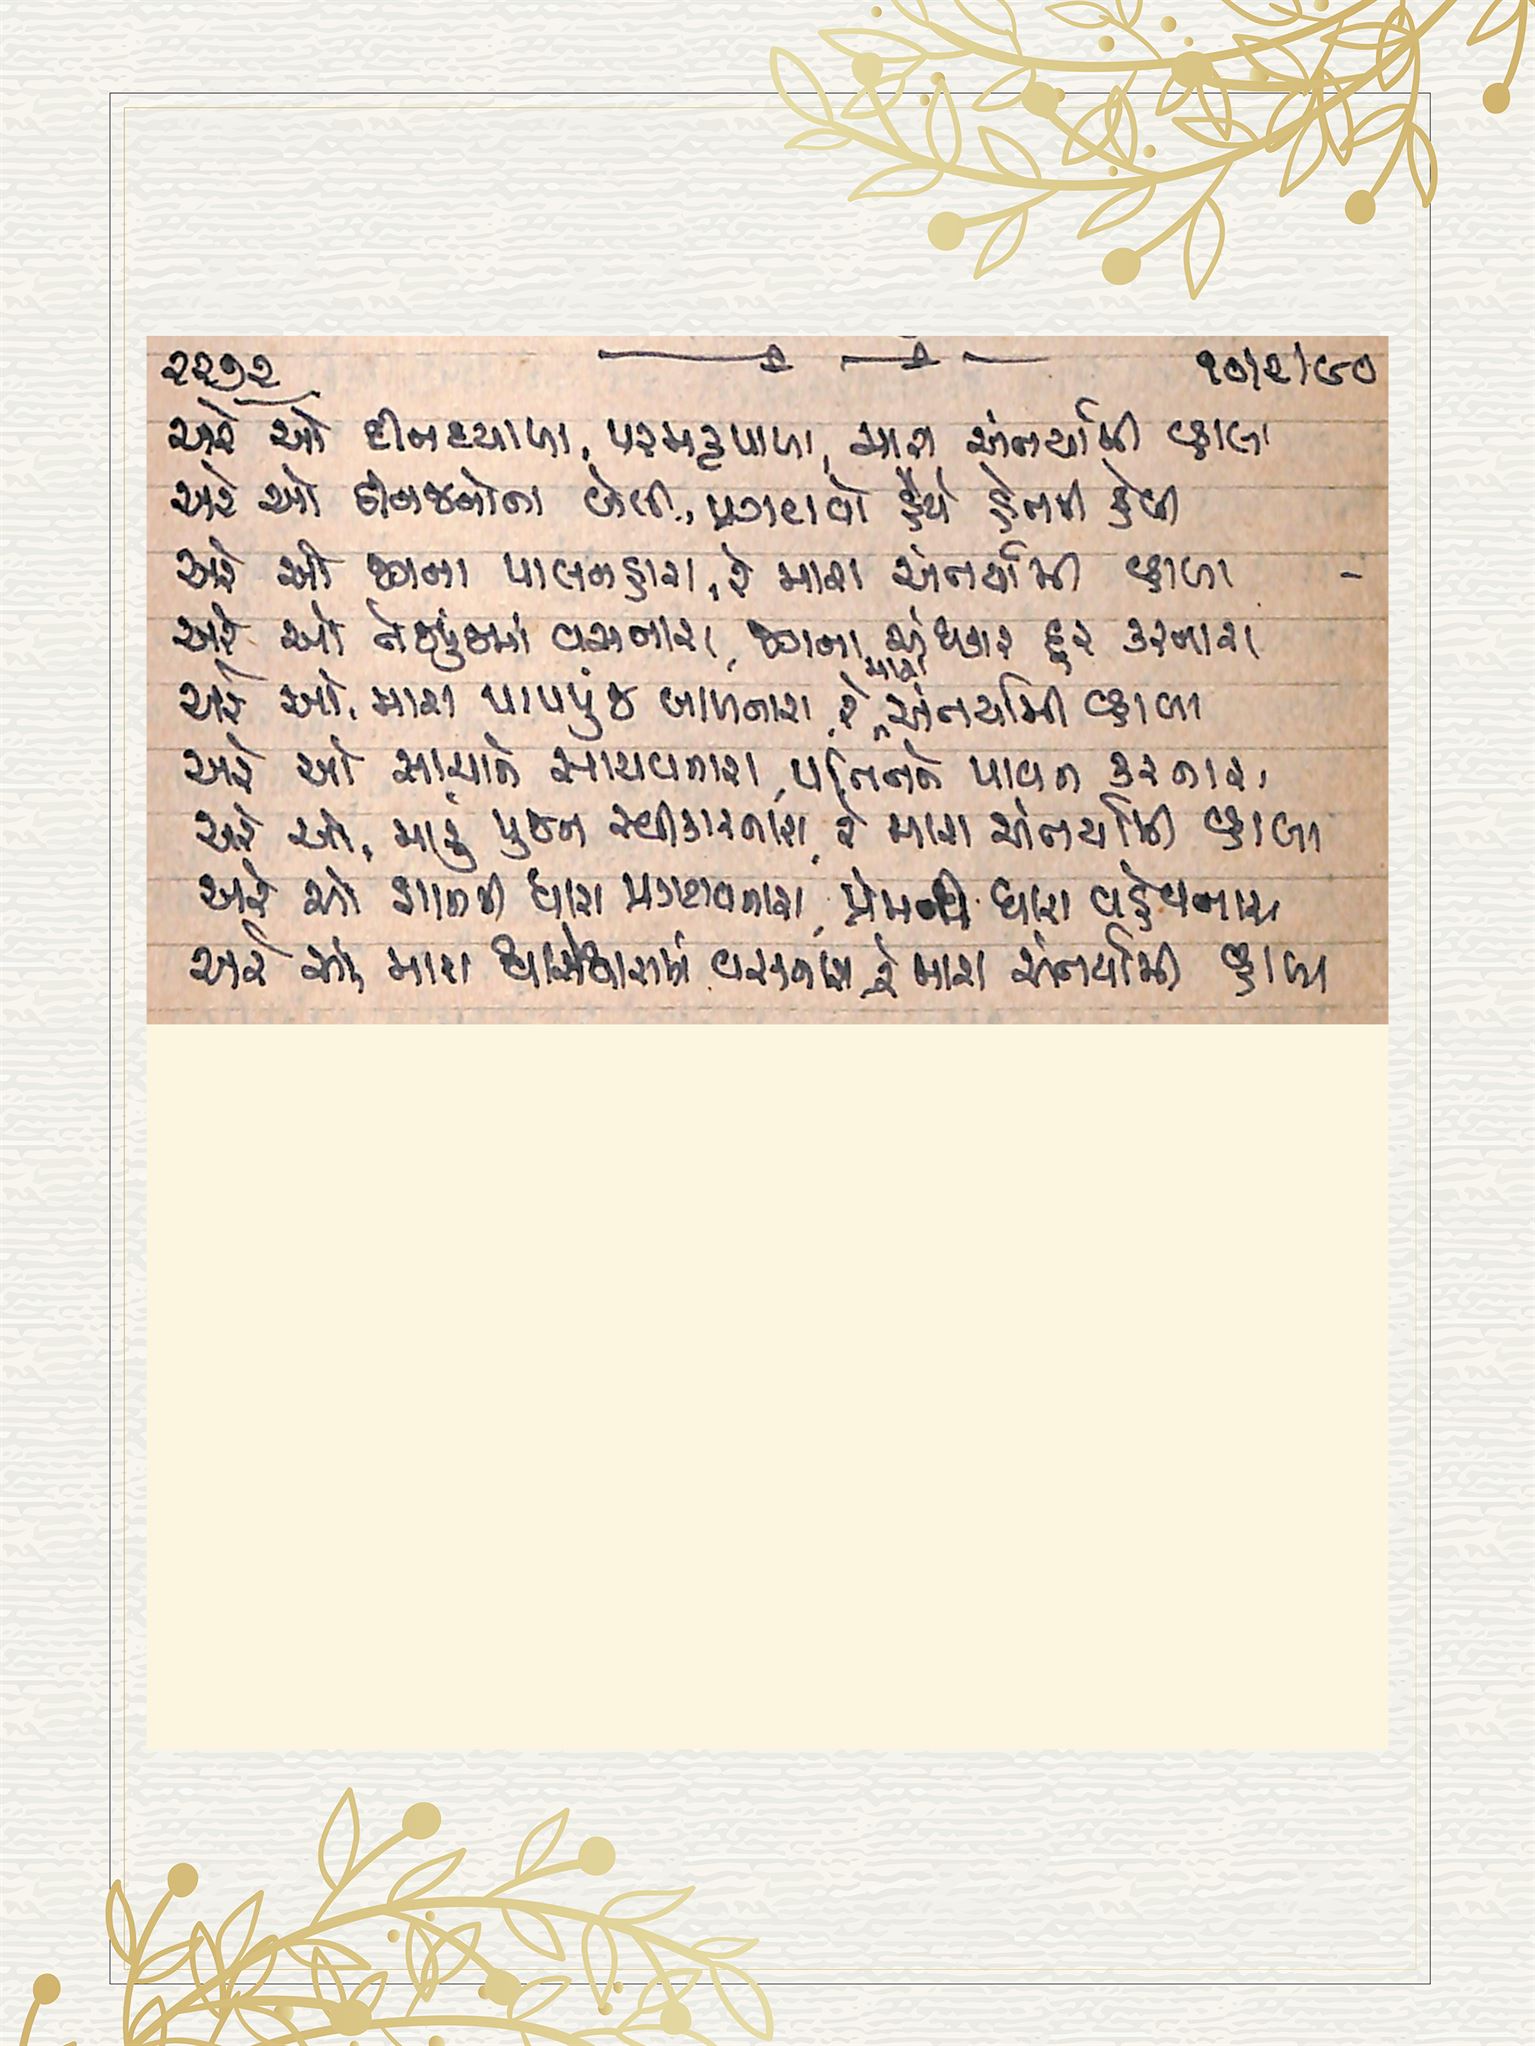 ૨૨૭૨ ૧૦/૨/૯૦
અરે ઓ દીનદયાળા, પરમકૃપાળા, મારા અંતર્યામી વ્હાલા
અરે ઓ દીનજનોના બેલી, પ્રગટાવો હૈયે હેતની હેલી
અરે ઓ જગના પાલનહારા, રે મારા અંતર્યામી વ્હાલા -
અરે ઓ તેજપુંજમાં વસનારા, જગના અંધકાર દૂર કરનારા
અરે ઓ, મારા પાપપુંજ બાળનારા, રે મારા અંતર્યામી વ્હાલા
અરે ઓ સાચાને સાચવનારા, પતિતને પાવન કરનારા
અરે ઓ, મારું પુજન સ્વીકારનારા, રે મારા અંતર્યામી વ્હાલા
અરે ઓ જ્ઞાનની ધારા પ્રગટાવનારા, પ્રેમની ધારા વહેવનારા
અરે ઓ, મારા શ્વાસેશ્વાસમાં વસનારા, રે મારા અંતર્યામી વ્હાલા